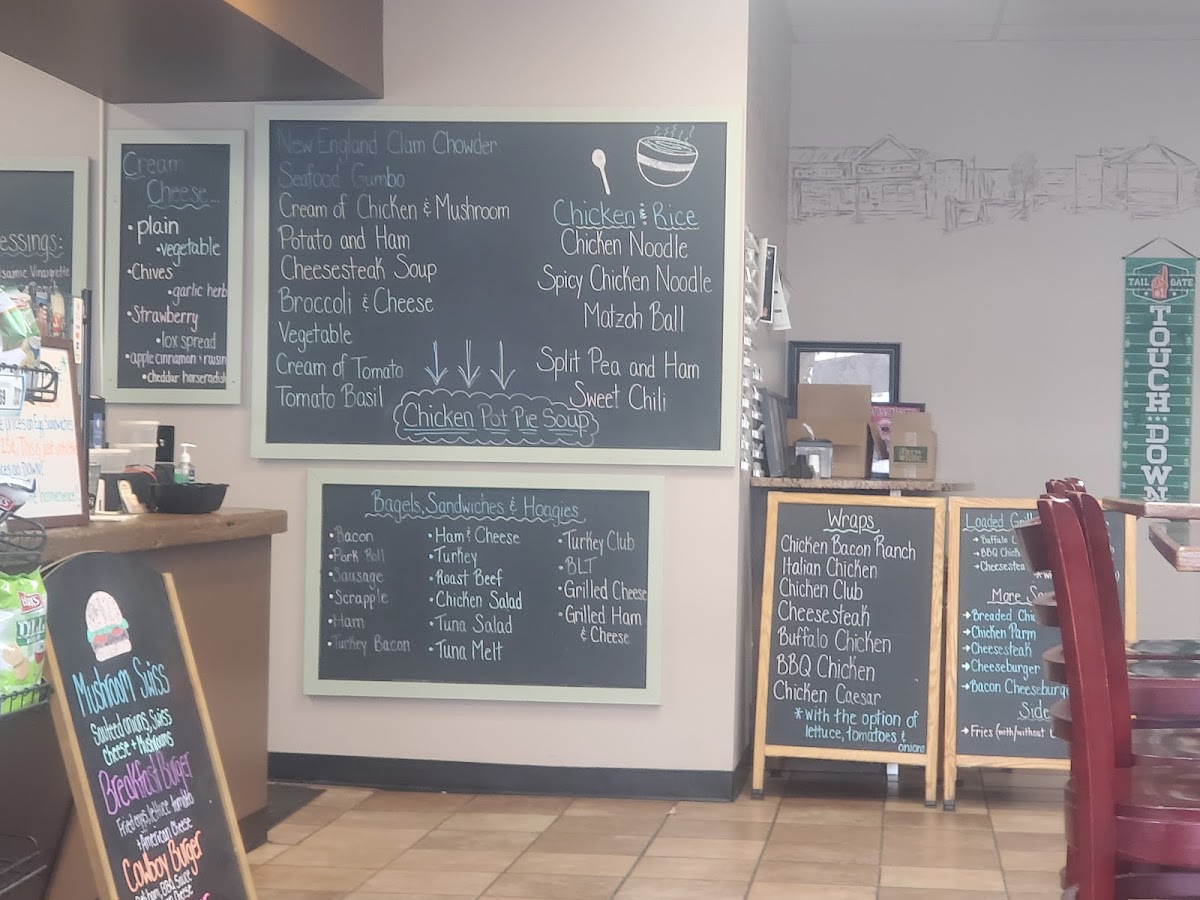 essings:
Vinaigrette
Cream
Cheese...
• plain
• vegetable
• Chives
• garlic herb
• Strawberry
• lox spread
• apple cinnamon + raisin
• cheddar horseradish
New England Clam Chowder
Seafood Gumbo
Cream of Chicken & Mushroom
Potato and Ham
Cheesesteak Soup
Broccoli & Cheese
Vegetable
Cream of Tomato
Tomato Basil
Chicken & Rice
Chicken Noodle
Spicy Chicken Noodle
Matzoh Ball
Split Pea and Ham
Sweet Chili
Chicken Pot Pie Soup
Bagels, Sandwiches & Hoagies
• Bacon
• Pork Roll
• Sausage
• Scrapple
• Ham
• Turkey Bacon
• Ham & Cheese
• Turkey
• Roast Beef
• Chicken Salad
• Tuna Salad
• Tuna Melt
• Turkey Club
• BLT
• Grilled Cheese
• Grilled Ham
& Cheese
Wraps
Chicken Bacon Ranch
Italian Chicken
Chicken Club
Cheesesteak
Buffalo Chicken
BBQ Chicken
Chicken Caesar
*with the option of
lettuce, tomatoes &
onions
Loaded Grill
• Buffalo C
• BBQ Chick
• Cheesestea
More Sa
→ Breaded Chi
→ Chicken Parm
→ Cheesesteak
→ Cheeseburger
→ Bacon Cheeseburg
Side
→ Fries (with/without
TAIL GATE
TOUCH DOWN
Mushroom Swiss
Sautéed onions, Swiss
cheese + Mushrooms
Breakfast Burger
Fried egg, lettuce, tomato
+ American Cheese
Cowboy Burger
BBQ Sauce
Cheese